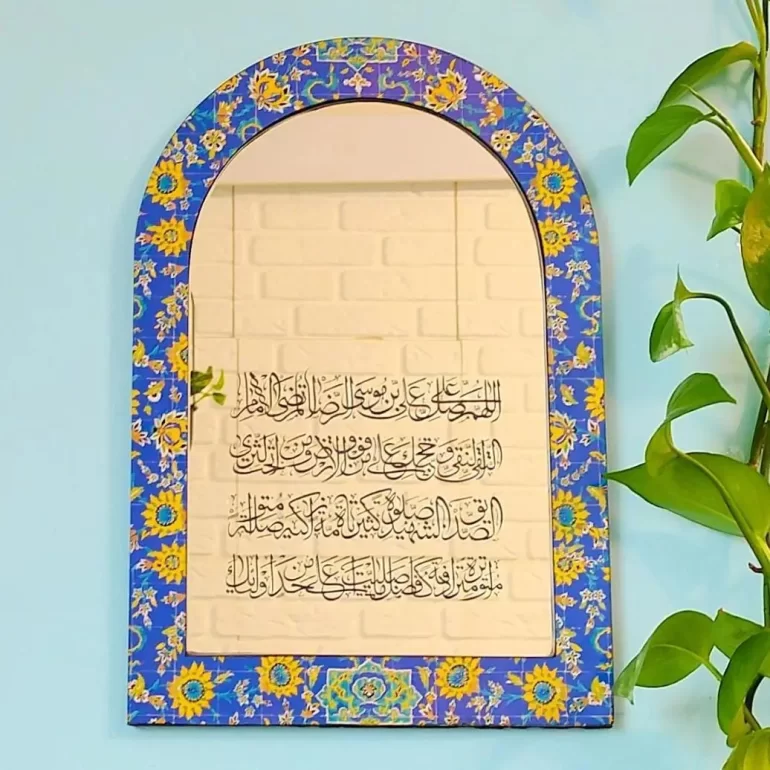 اللهم صل علی علی بن موسی الرضا المرتضی الامام
التقی النقی و حجتک علی من فوق الارض و من تحت الثری
الصدیق الشهید صلوة کثیرة تامة زاکیة متواصلة
متواترة مترادفة کافضل ما صلیت علی احد من اولیائک